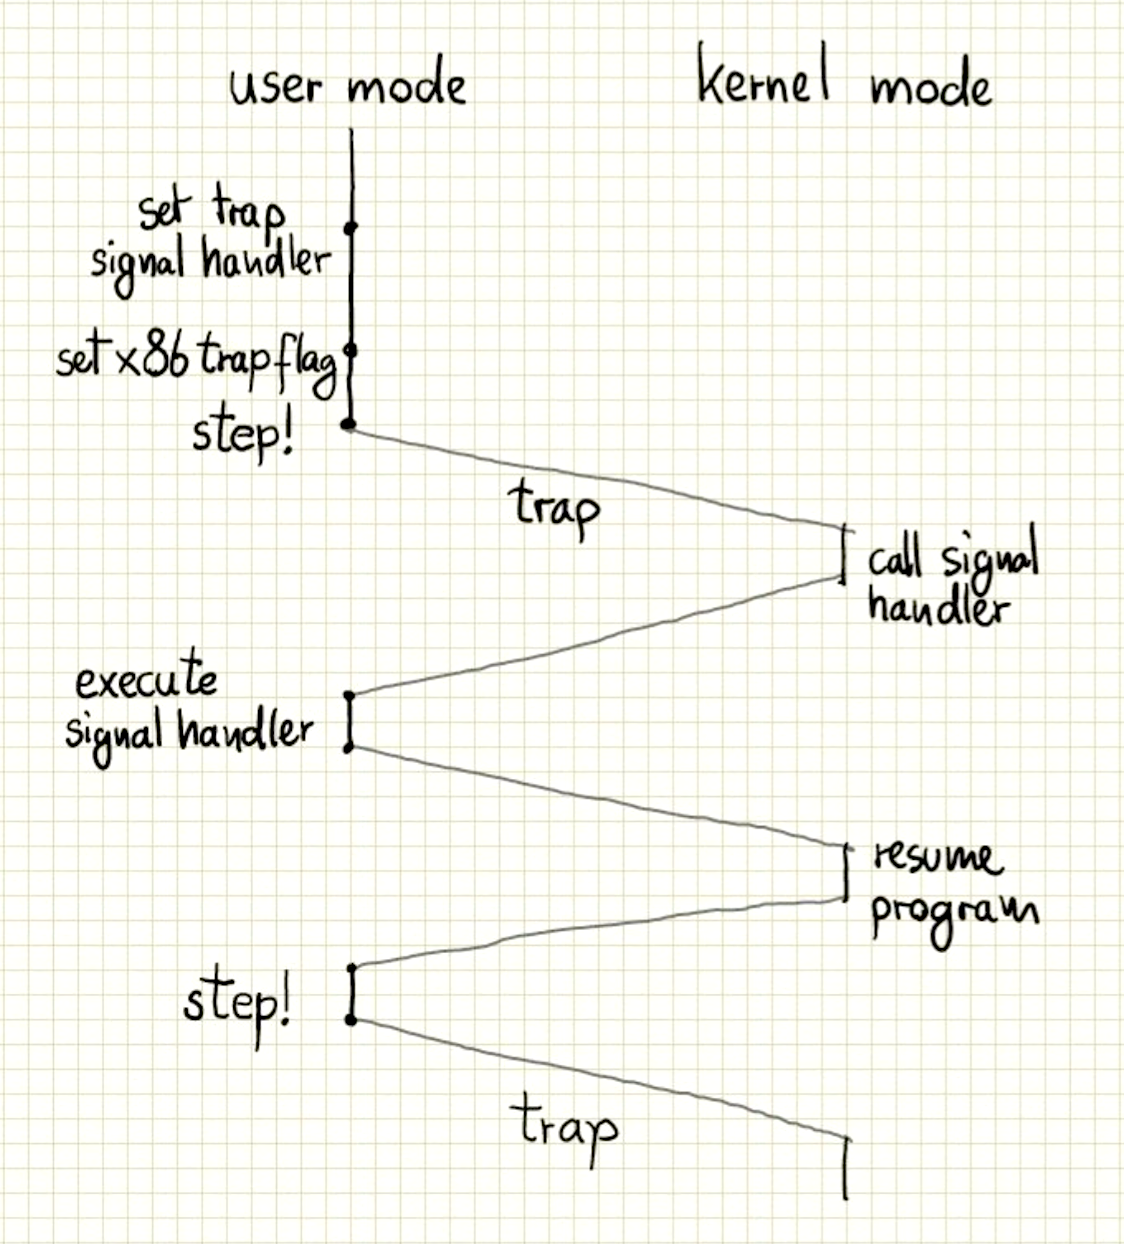 user mode
kernel mode
set trap
signal handler
set x86 trap flag
step!
trap
call signal
handler
execute
signal handler
resume
program
step!
trap